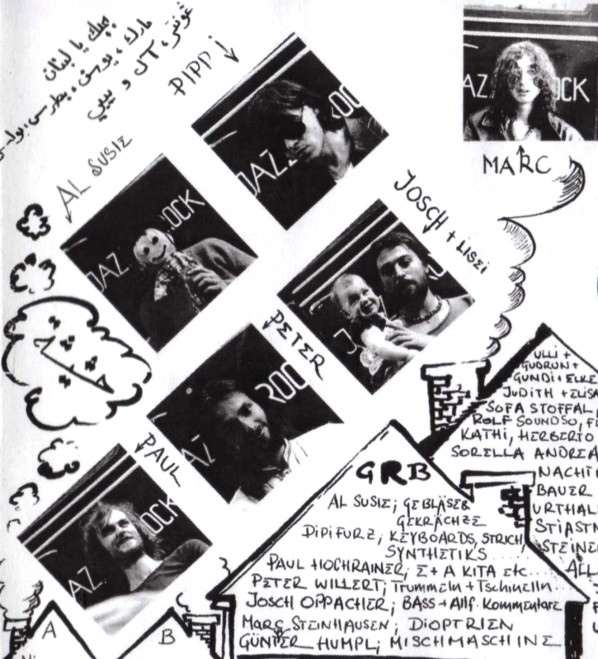 بحبك يا لبنان
مارك، يوسف، بطرس، بولس
غونتر، آل و بيبي
PIPPI
MARC
AL SUSIE
JOSCH + LISZI
PETER
PAUL
JAZ
ROCK
ULLI +
GUDRUN +
GUNDI + ELKE
JUDITH + ELISA
SOFA STOFFAL,
ROLF SOUNDSO,
KATHI, HERBERTO
SORELLA ANDREA
NACHT
BAUER
URTHAL
STIASTN
STEINE
ALL
GRB
AL SUSIE; GEBLÄSE
GEKRÄCHZE
DIPIFURZ, KEYBOARDS, STRICH,
SYNTHETIKS
PAUL HOCHRAINER; E+A KITA etc...
PETER WILLERT; Trummeln + Tschinelln..
JOSCH OPPACHER; BASS + Allf. Kommentare
MARC STEINHAUSEN; DiOPTRiEN
GÜNTER HUMPL; MISCHMASCHINE
A
B